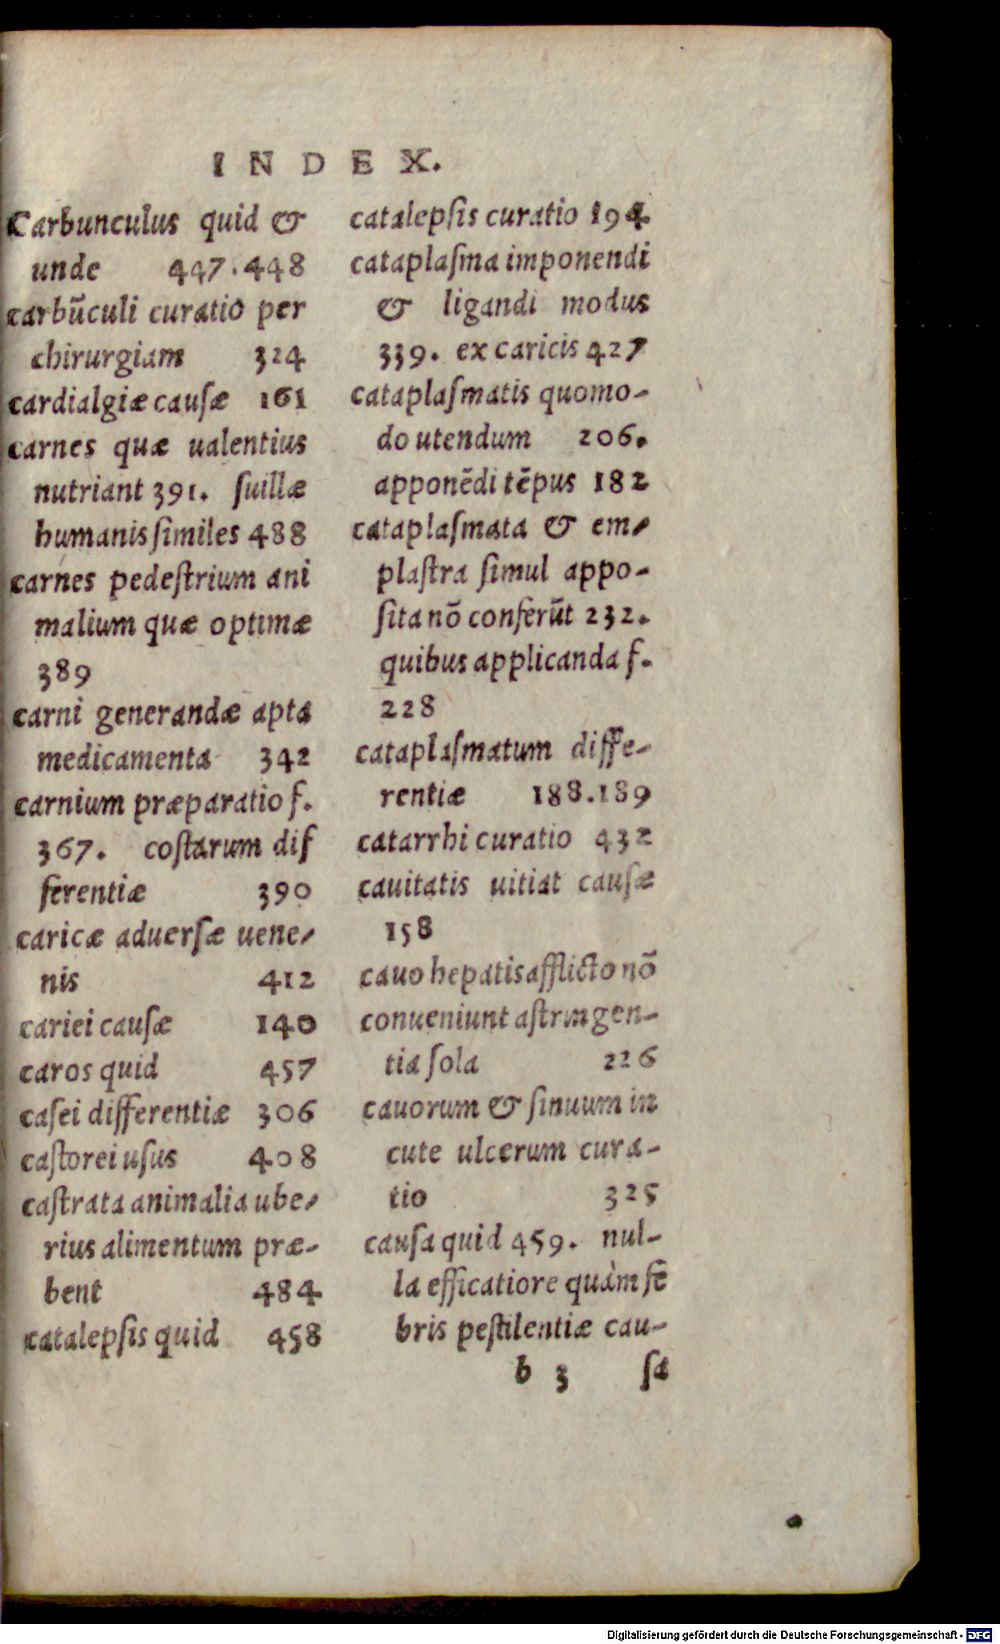 INDEX.
Carbunculus quid &
unde 447.448
carbũculi curatio per
chirurgiam 324
cardialgiæ causæ 161
carnes quæ ualentius
nutriant 391. suillæ
humanis similes 488
carnes pedestrium ani
malium quæ optimæ
389
carni generandæ apta
medicamenta 342
carnium præparatio f.
367. costarum dif
ferentiæ 390
caricæ aduersæ uene-
nis 412
cariei causæ 140
caros quid 457
casei differentiæ 306
castorei usus 408
castrata animalia ube-
rius alimentum præ-
bent 484
catalepsis quid 458
catalepsis curatio 194
cataplasma imponendi
& ligandi modus
339. ex caricis 427
cataplasmatis quomo-
do utendum 206.
apponẽdi tẽpus 182
cataplasmata & em-
plastra simul appo-
sita nõ conferũt 232.
quibus applicanda f.
228
cataplasmatum diffe-
rentiæ 188.189
catarrhi curatio 432
cauitatis uitiat causæ
158
cauo hepatis afflicto nõ
conueniunt astringen-
tia sola 226
cauorum & sinuum in
cute ulcerum cura-
tio 325
causa quid 459. nul-
la efficatiore quàm fẽ
bris pestilentiæ cau-
b 3 sa
Digitalisierung gefördert durch die Deutsche Forschungsgemeinschaft - DFG